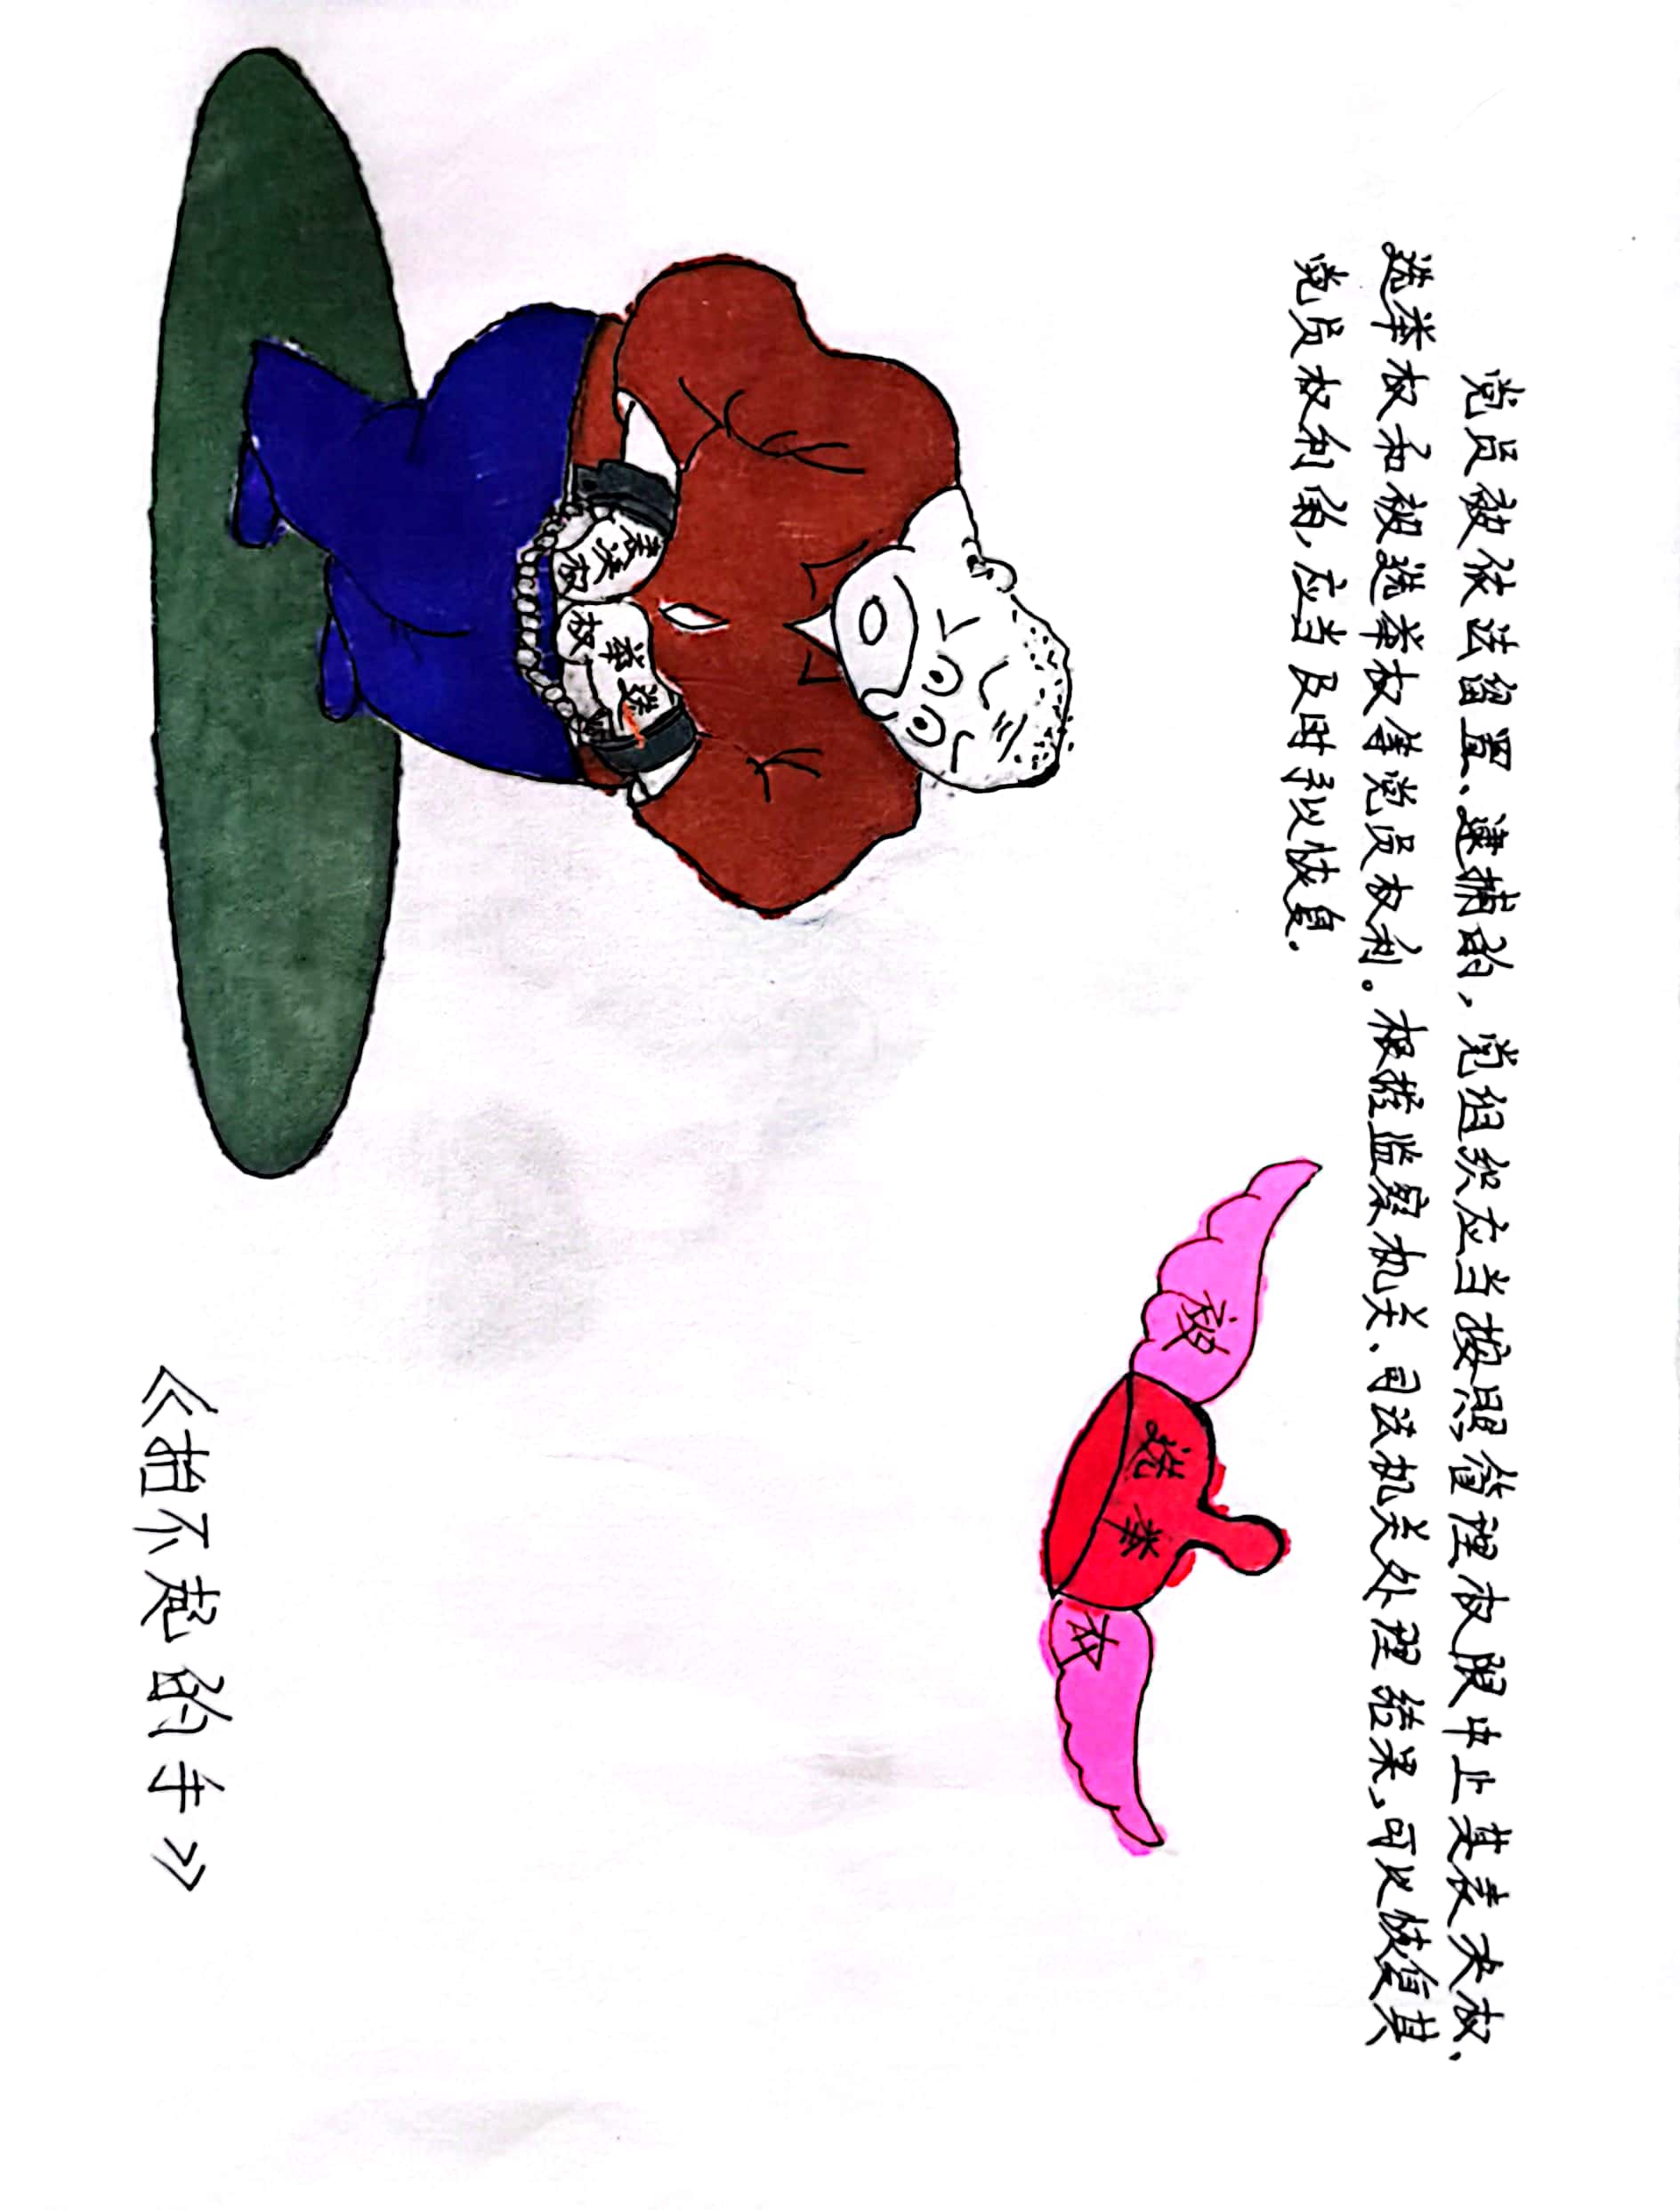 党员被依法留置、逮捕的，党组织应当按照管理权限中止其表决权、
选举权和被选举权等党员权利。根据监察机关、司法机关处理结果，可以恢复其
党员权利的，应当及时予以恢复.
表决
权
选举
权
被
选举
权
《抬不起的手》